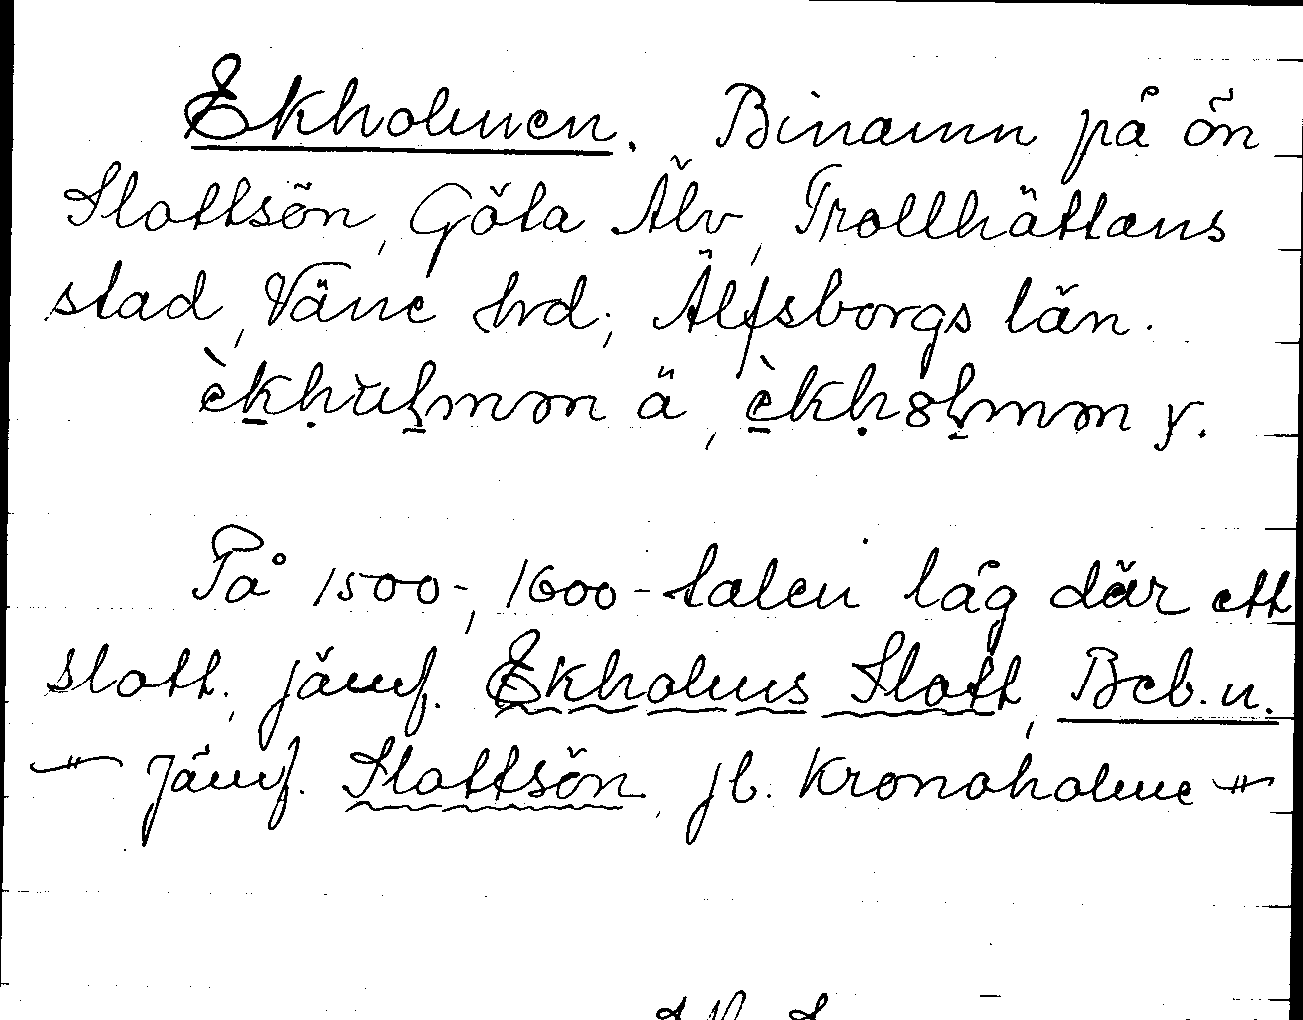 Ekholmen. Binamn på ön
Slottsön, Göta Älv, Trollhättans
stad, Väne hrd; Älfsborgs län.
ä, y.
På 1500-, 1600-talen låg där ett
slott. jämf. Ekholms Slott, Beb.n.
Jämf. Slottsön, jb. Kronoholme